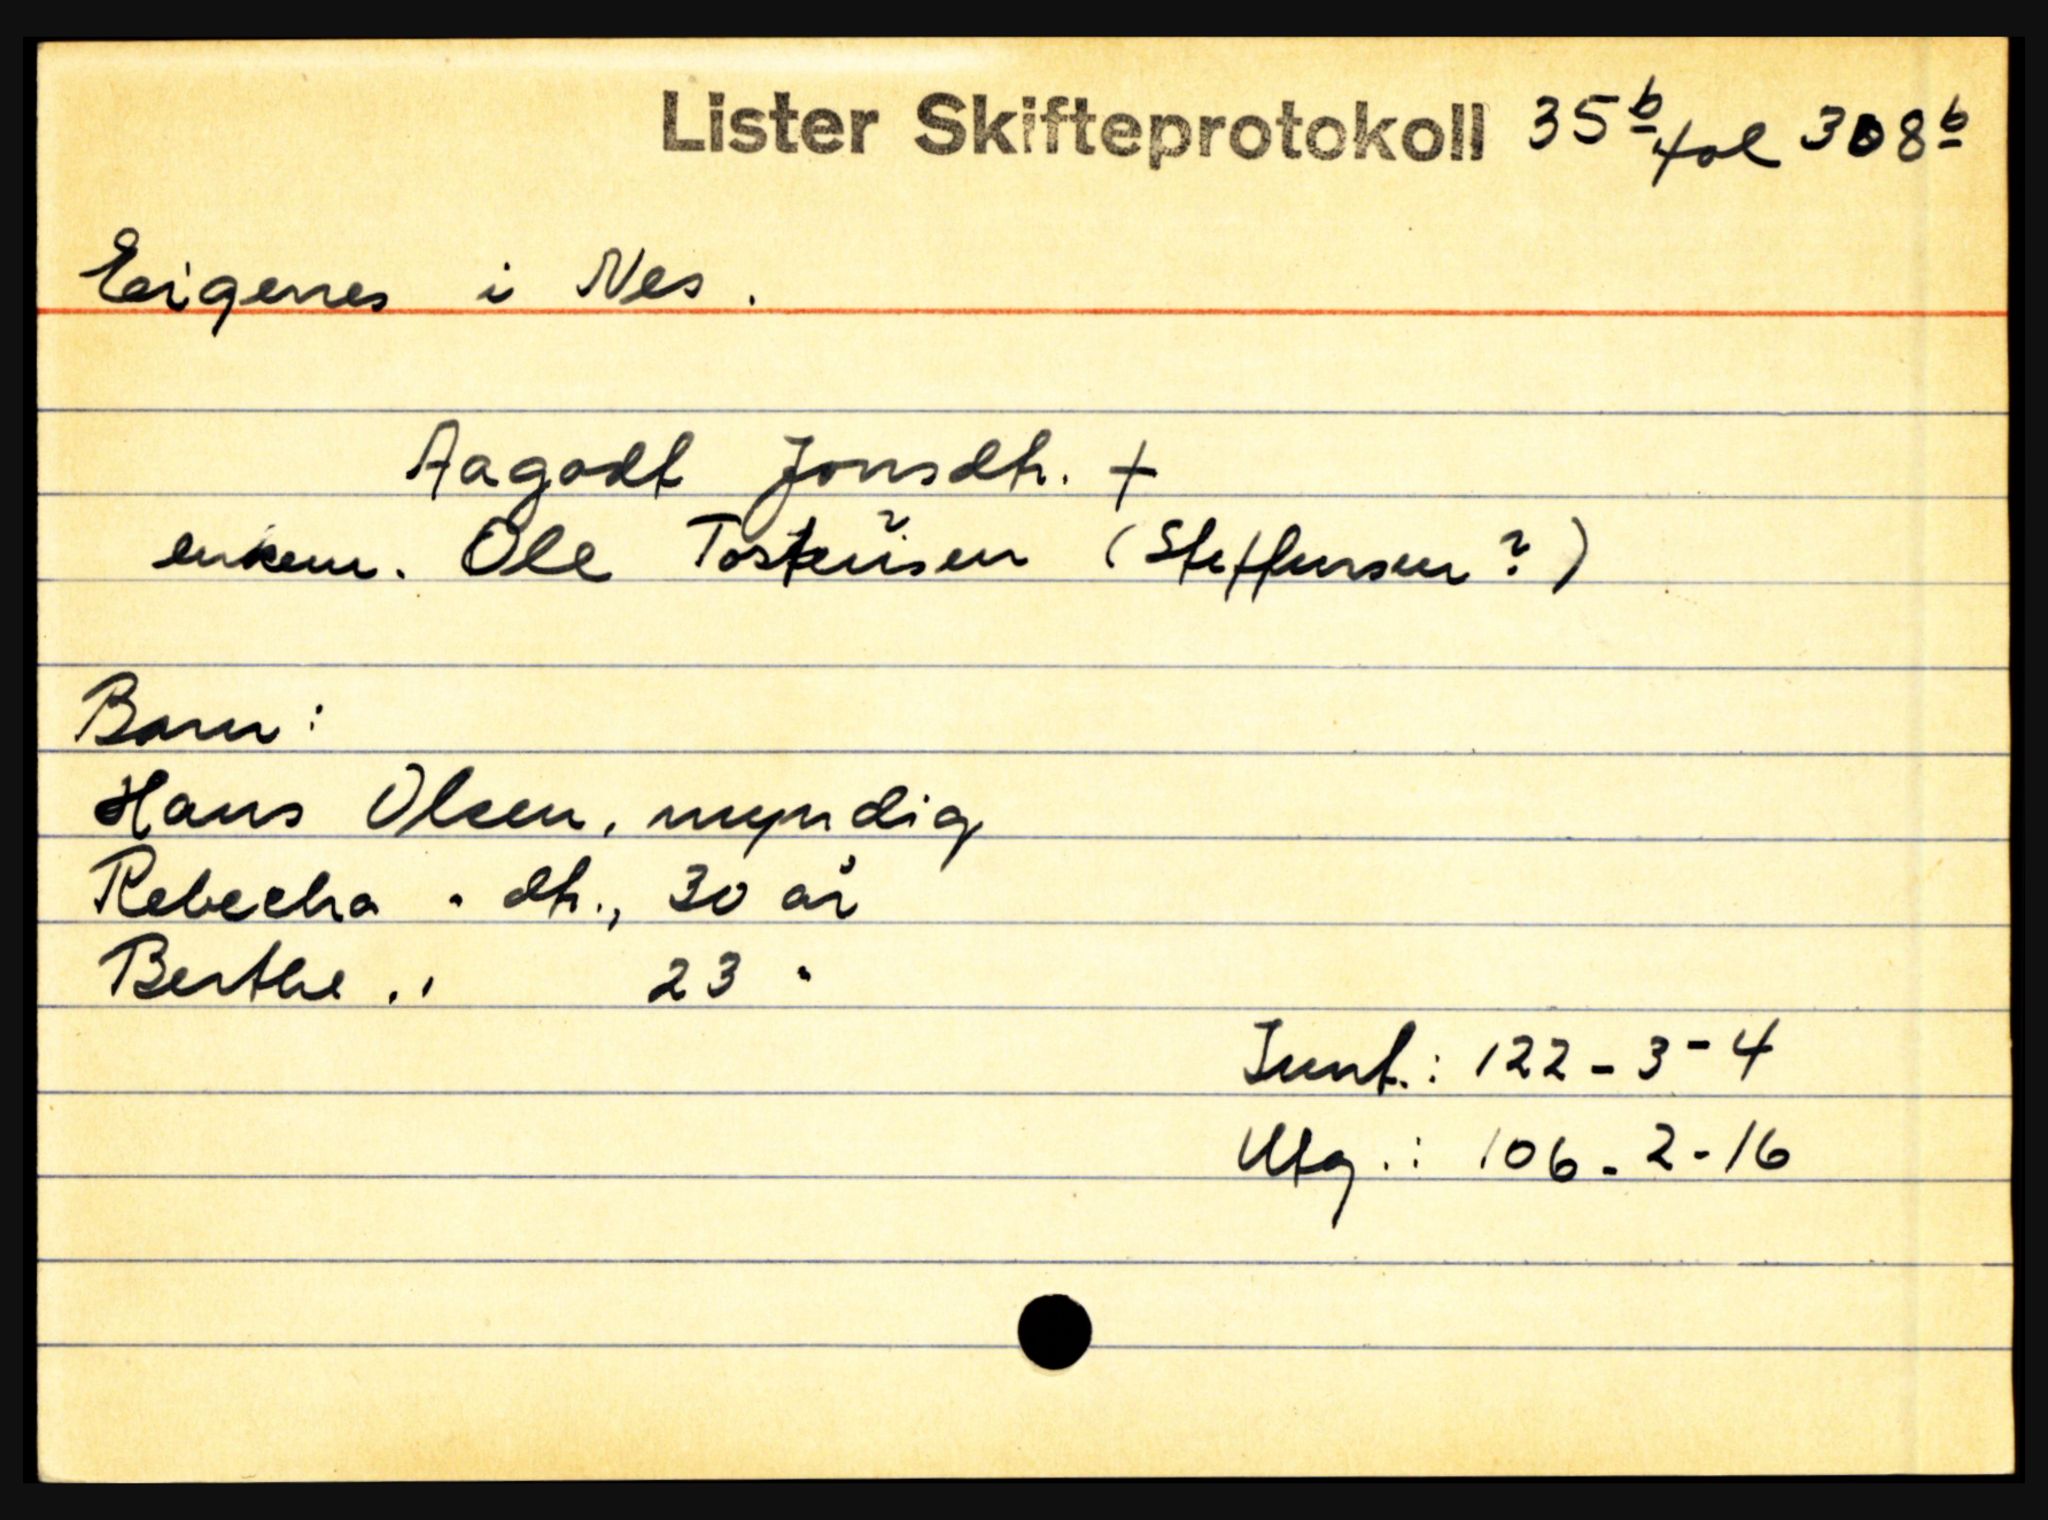 Lister Skifteprotokoll 35ᵇ fol 308ᵇ
Eigenes i Nes.
Aagodt Jonsdtr. +
enkem. Ole Tosteñsen (Steffensen?)
Barn:
Hans Olsen, myndig
Rebecha " dtr., 30 år
Berthe " 23 "
Innt.: 122-3-4
Utg.: 106-2-16